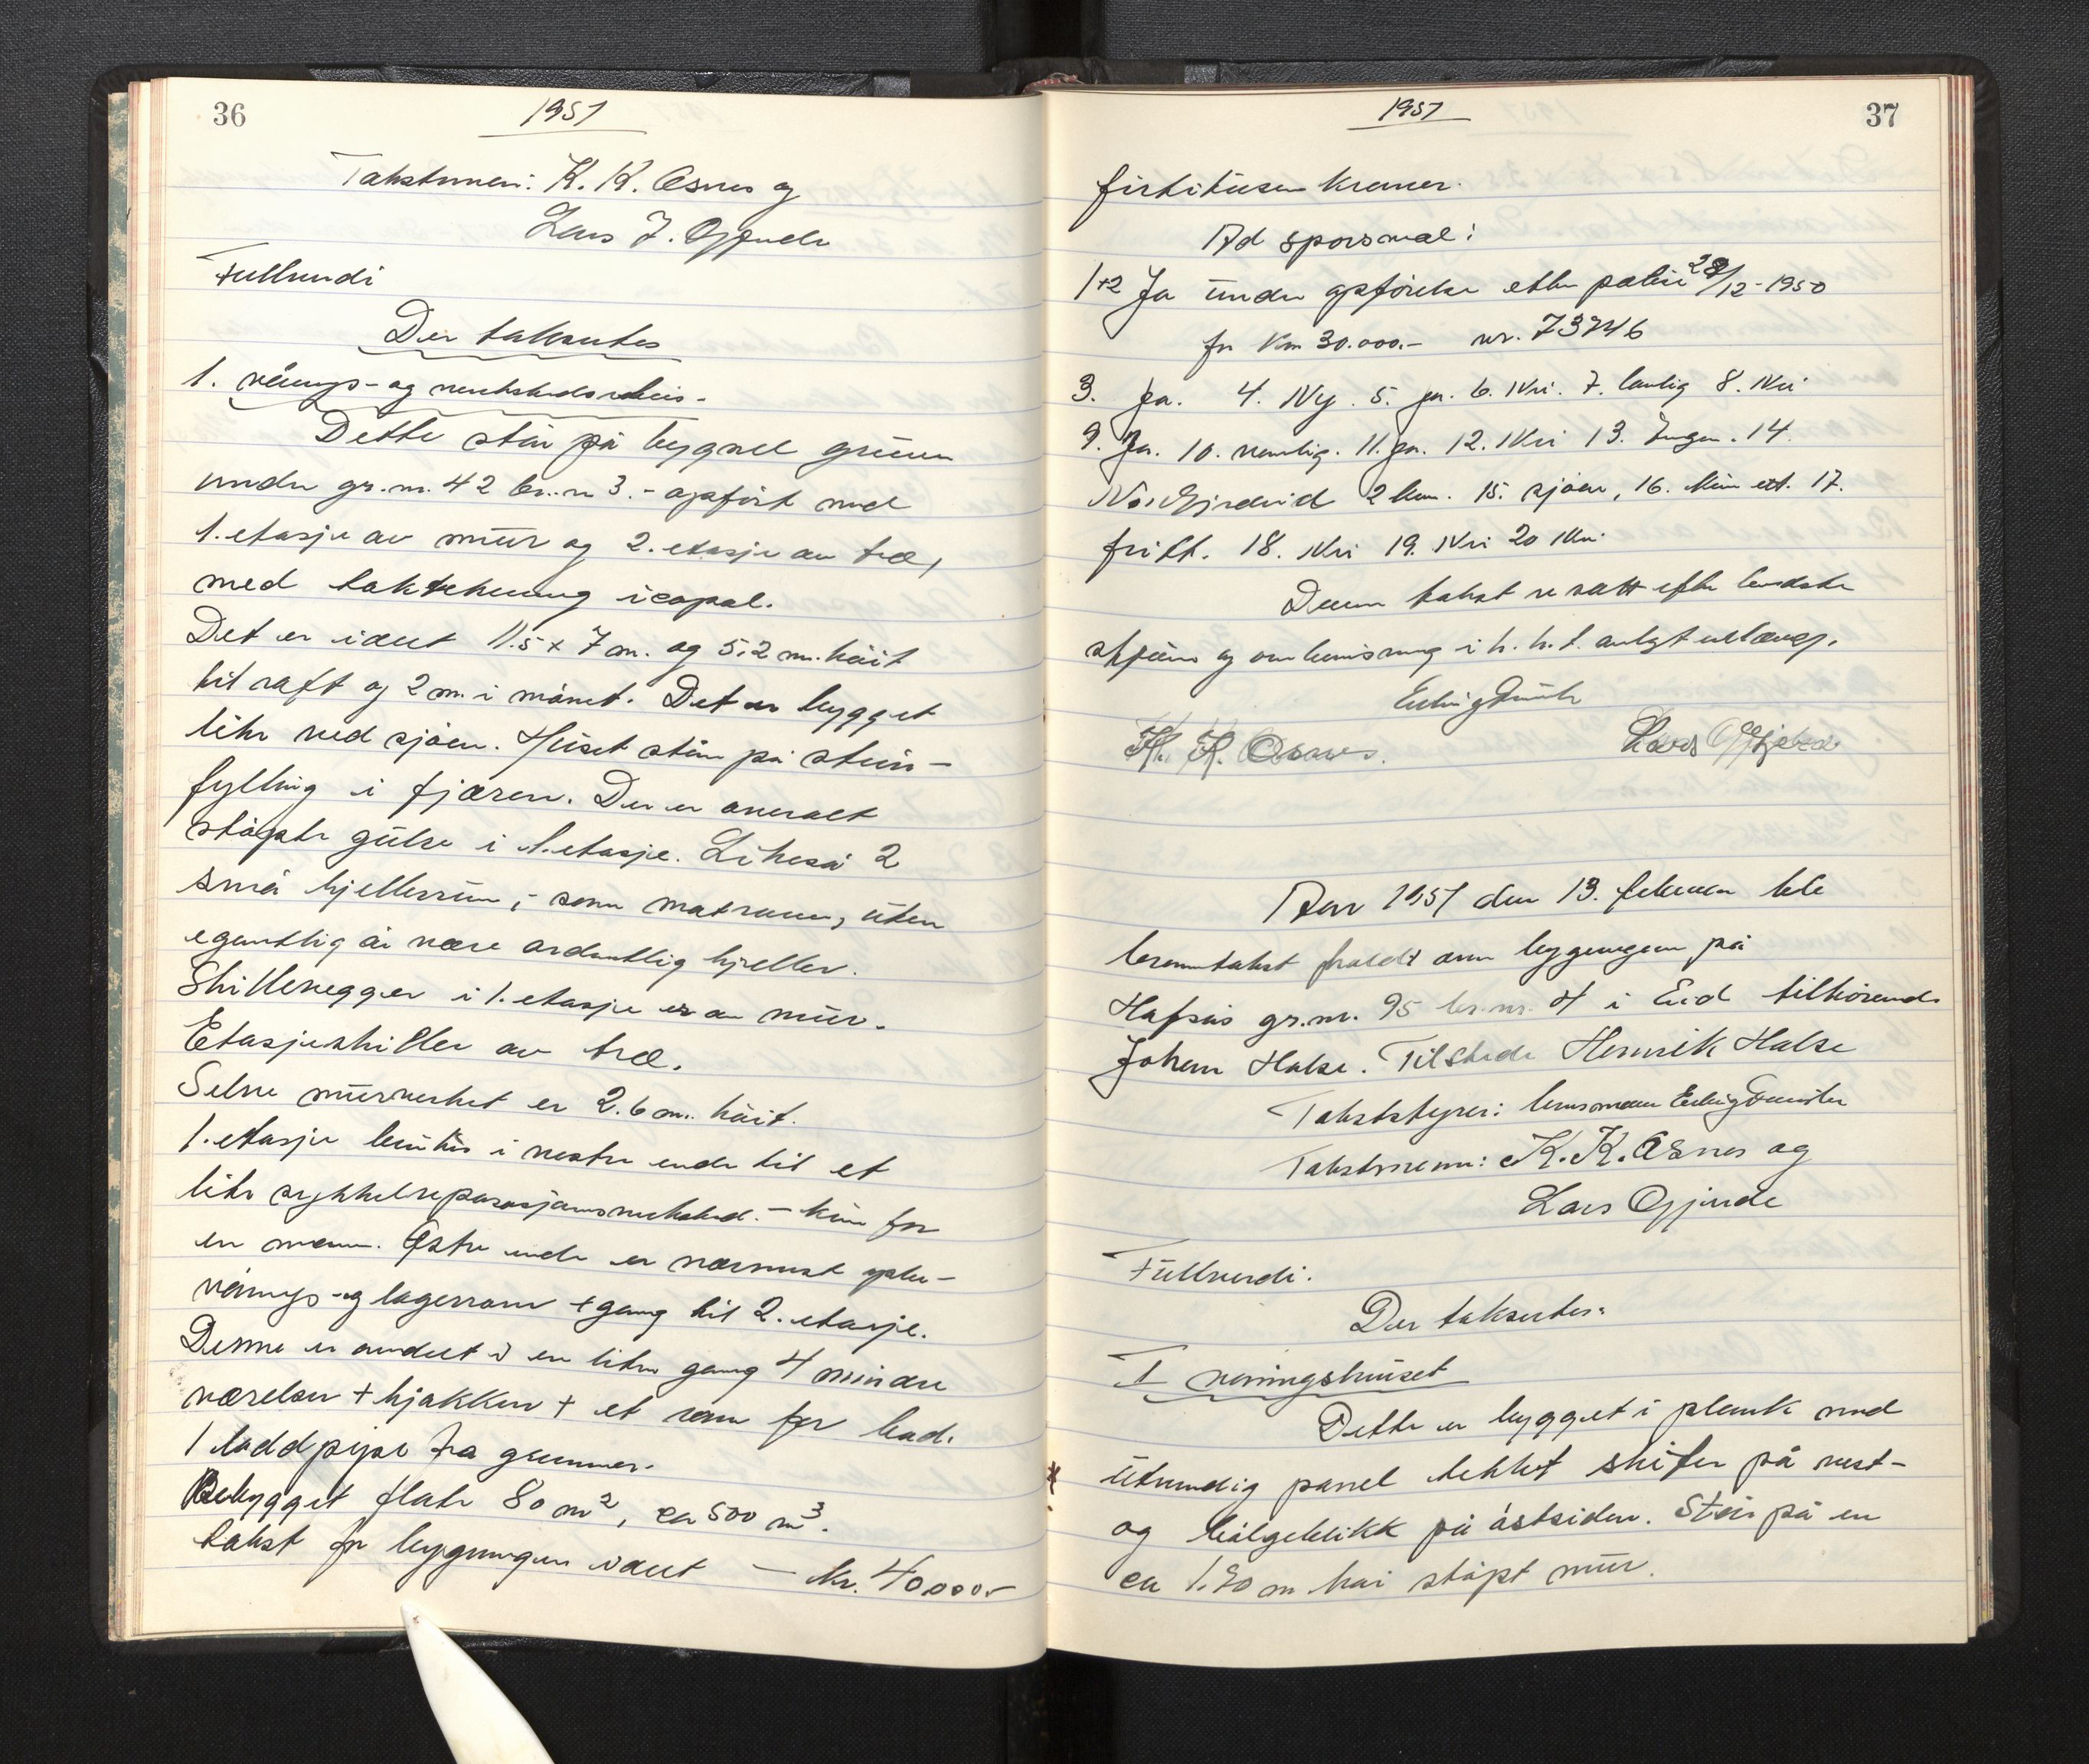 36
1951
Takstmenn: K. K. Osnes og
Lars J. Gjerde
Fullverdi
Der taksertes
1. vånings- og verkstedshus.
Dette står på bygsel grunn
under gr.nr. 42 br.nr 3.- opført med
1. etasje av mur og 2. etasje av træ,
med taktekning icopal.
Det er i alt 11.5 x 7 m. og 5.2 m. høit
til raft og 2 m. i mønet. Det er bygget
like ved sjøen. Huset står på stein-
fylling i fjæren. Der er overalt
støpte gulve i 1. etasje. Likeså 2
små kjellerrum, som matrum, uten
egentlig å være ordentlig kjeller.
Skillevegger i 1. etasje er av mur.
Etasjeskiller av træ.
Selve murverket er 2.6 m. høit.
1. etasje benttes i vestre ende til et
lite sykkelreparasjonsverksted. - kun for
en mann. Østre ende er nærmest opbe-
vånings- og lagerrom + gang til 2. etasje.
Denne er inndelt i en liten gang 4 mindre
værelser + kjøkken + et rom for bad.
1 ladd pipe fra grunnen.
Bebygget flate 80 m², ca 500 m³.
takst for bygningen i alt — kr. 40000.-
1951
37
førtitusen kroner.
Ad spørsmal:
1+2 Ja under opførelse etter polise 29/12-1950
for Kr. 30.000.- nr. 73746
3. Ja. 4. Ny. 5. ja. 6. Nei. 7. lovlig 8. Nei
9. Ja. 10. vanlig. 11. ja. 12. Nei 13. Ingen. 14.
Nordfjordeid 2 km. 15. sjøen, 16. kun ett. 17.
fritt. 18. Nei 19. Nei 20 Nei
Denne takst er satt etter beste
skjønn og overbevisning i h. h. t. avlagt erklæring.
K. K. Osnes.
Lars Gjerde
Aar 1951 den 13. februar ble
branntakst holdt over bygningen på
gr.nr. 95 br.nr. 4 i Eid tilhørende
Johan Halse. Tilstede Henrik Halse
Takststyrer: lensmann
Takstmenn: K. K. Osnes og
Lars Gjerde
Fullverdi.
Der taksertes:
I våningshuset
Dette er bygget i plank med
utvendig panel tekket skifer på vest-
og bølgeblikk på østsiden. Står på en
ca 1.90 m høi støpt mur.